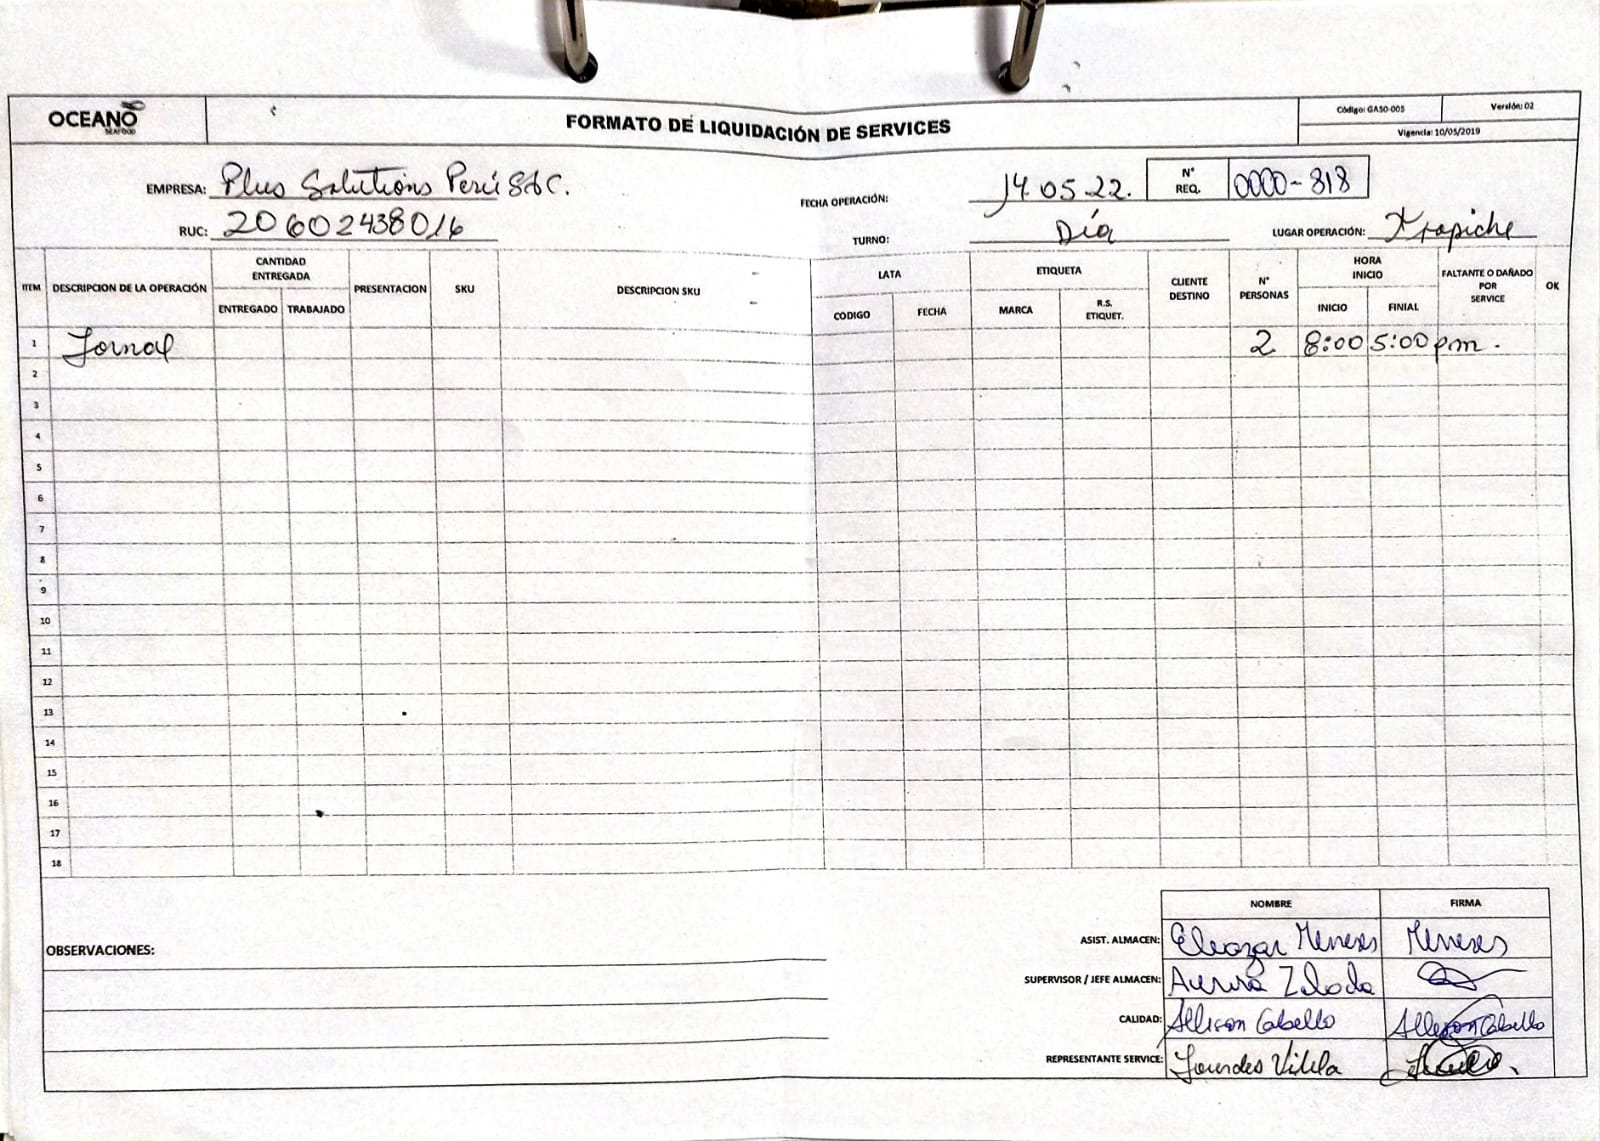 OCEANO
SEAFOOD
FORMATO DE LIQUIDACIÓN DE SERVICES
Código: GA50-005
Versión: 02
Vigencia: 10/05/2019
EMPRESA: Plus Solutions Perú SAC.
FECHA OPERACIÓN: 14.05.22.
N° REQ. 0000-818
RUC: 20602438016
TURNO: Día
LUGAR OPERACIÓN: Trapiche
ITEM DESCRIPCION DE LA OPERACIÓN CANTIDAD ENTREGADA PRESENTACION SKU DESCRIPCION SKU LATA ETIQUETA CLIENTE DESTINO N° PERSONAS HORA INICIO FALTANTE O DAÑADO POR SERVICE OK
ENTREGADO TRABAJADO CODIGO FECHA MARCA R.S. ETIQUET. INICIO FINIAL
1 Jornal 2 8:00 5:00 pm.
2
3
4
5
6
7
8
9
10
11
12
13
14
15
16
17
18
NOMBRE FIRMA
OBSERVACIONES:
ASIST. ALMACEN: Eleazar Meneses Meneses
SUPERVISOR / JEFE ALMACEN:
CALIDAD: Allison Cabello Allison Cabello
REPRESENTANTE SERVICE: Lourdes Vilela